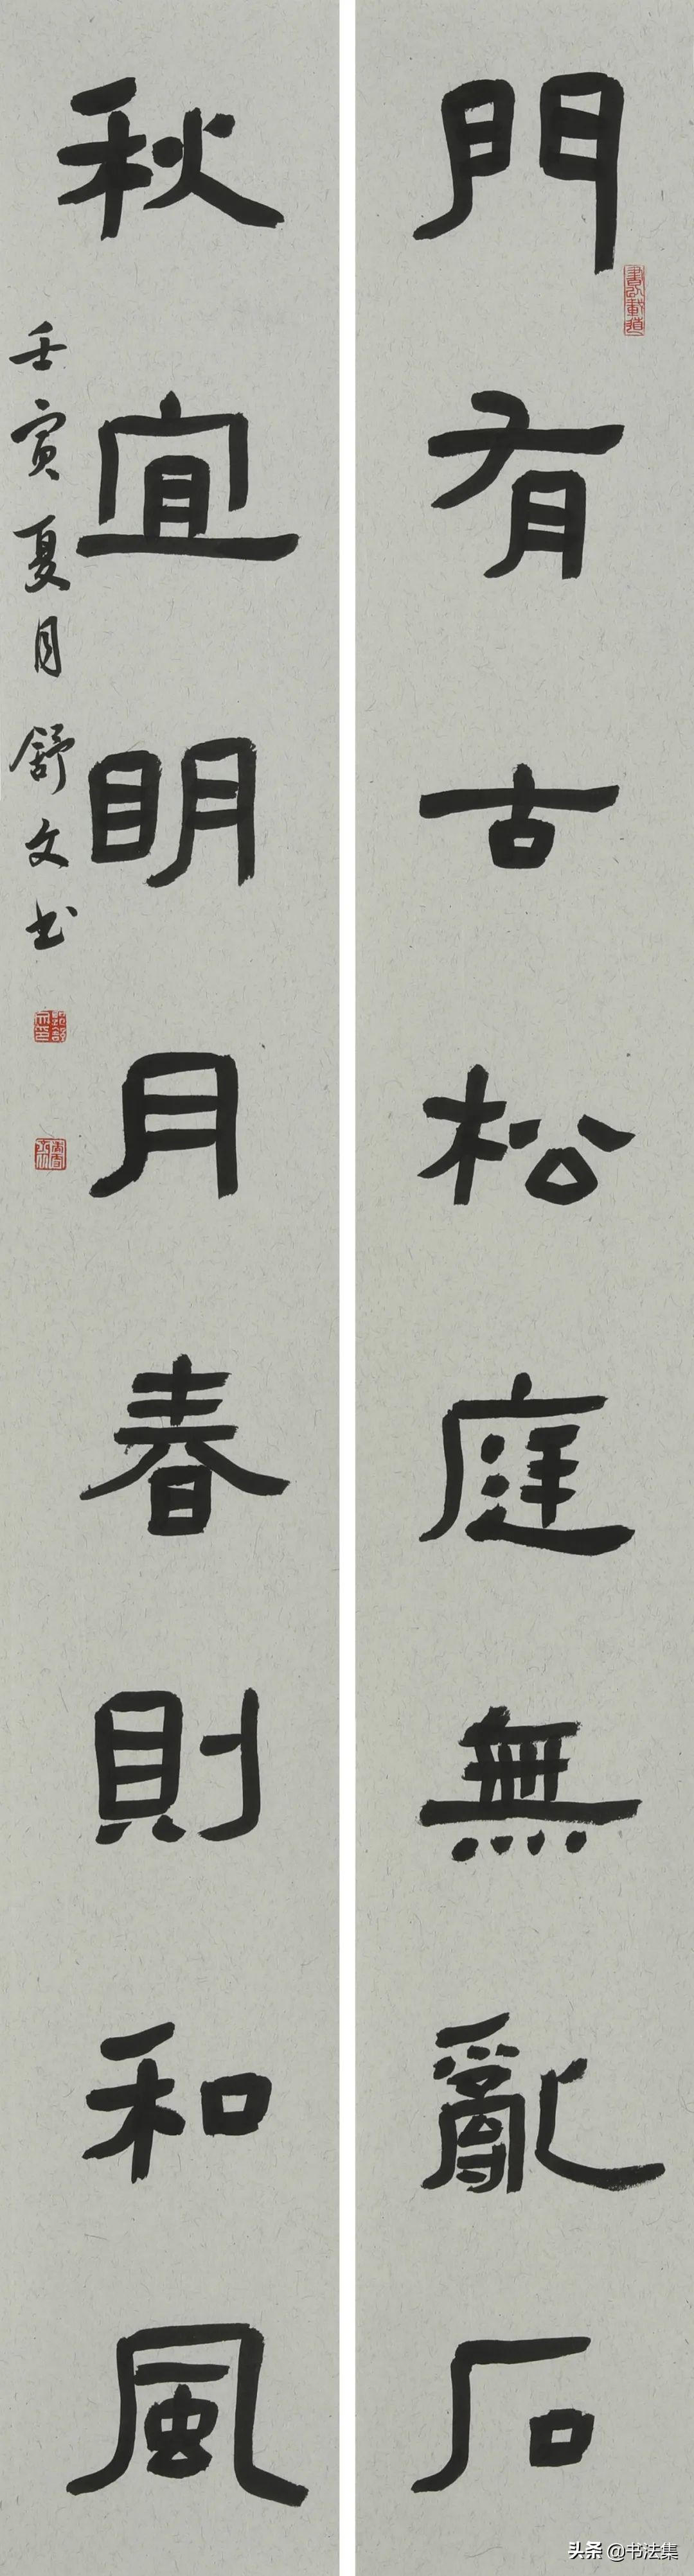 門有古松庭無亂石
秋宜明月春則和風
壬寅夏月舒文书
書以載道
头条 @书法集